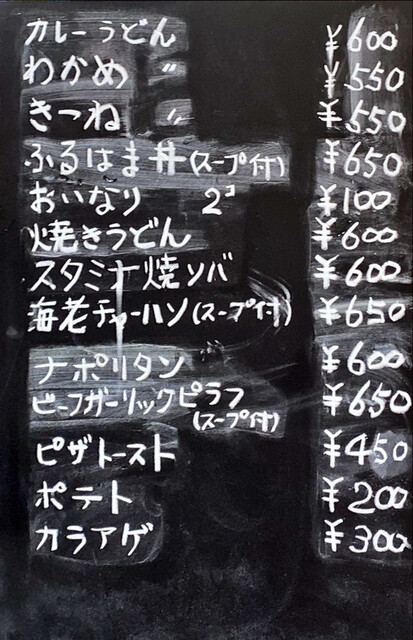 カレーうどん ¥600
わかめ 〃 ¥550
きつね 〃 ¥550
ふるはま丼(スープ付) ¥650
おいなり 2コ ¥100
焼きうどん ¥600
スタミナ焼ソバ ¥600
海老チャーハン(スープ付) ¥650
ナポリタン ¥600
ビーフガーリックピラフ ¥650
(スープ付)
ピザトースト ¥450
ポテト ¥200
カラアゲ ¥300